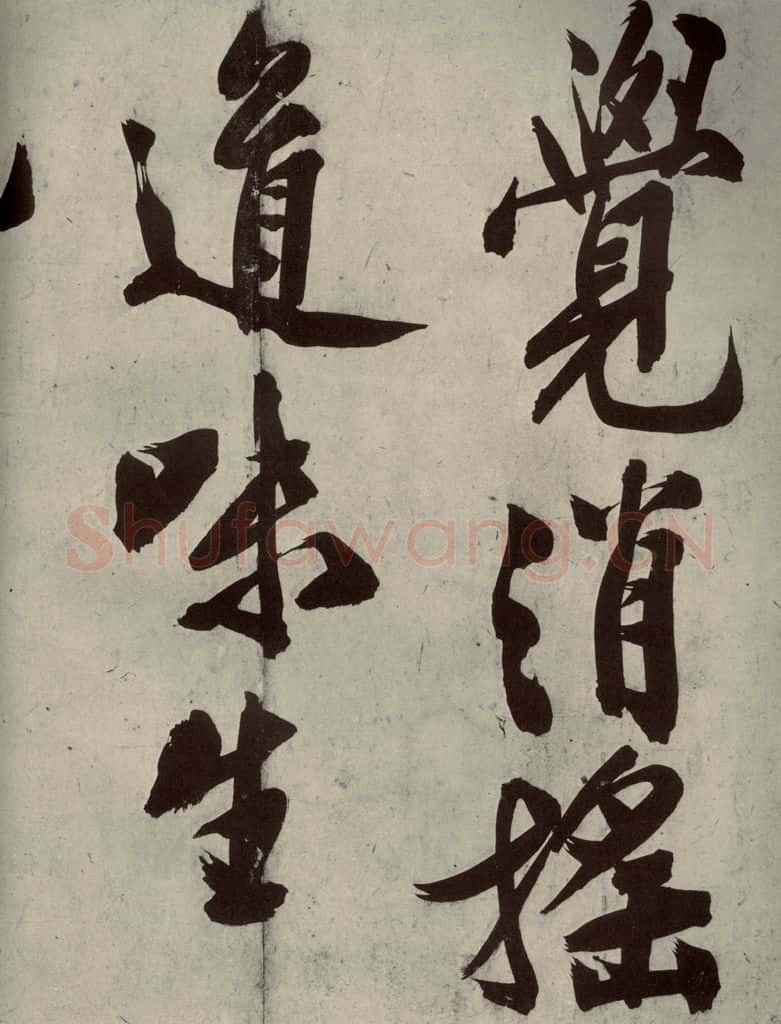 覺消搖
道味生
Shufawang.CN